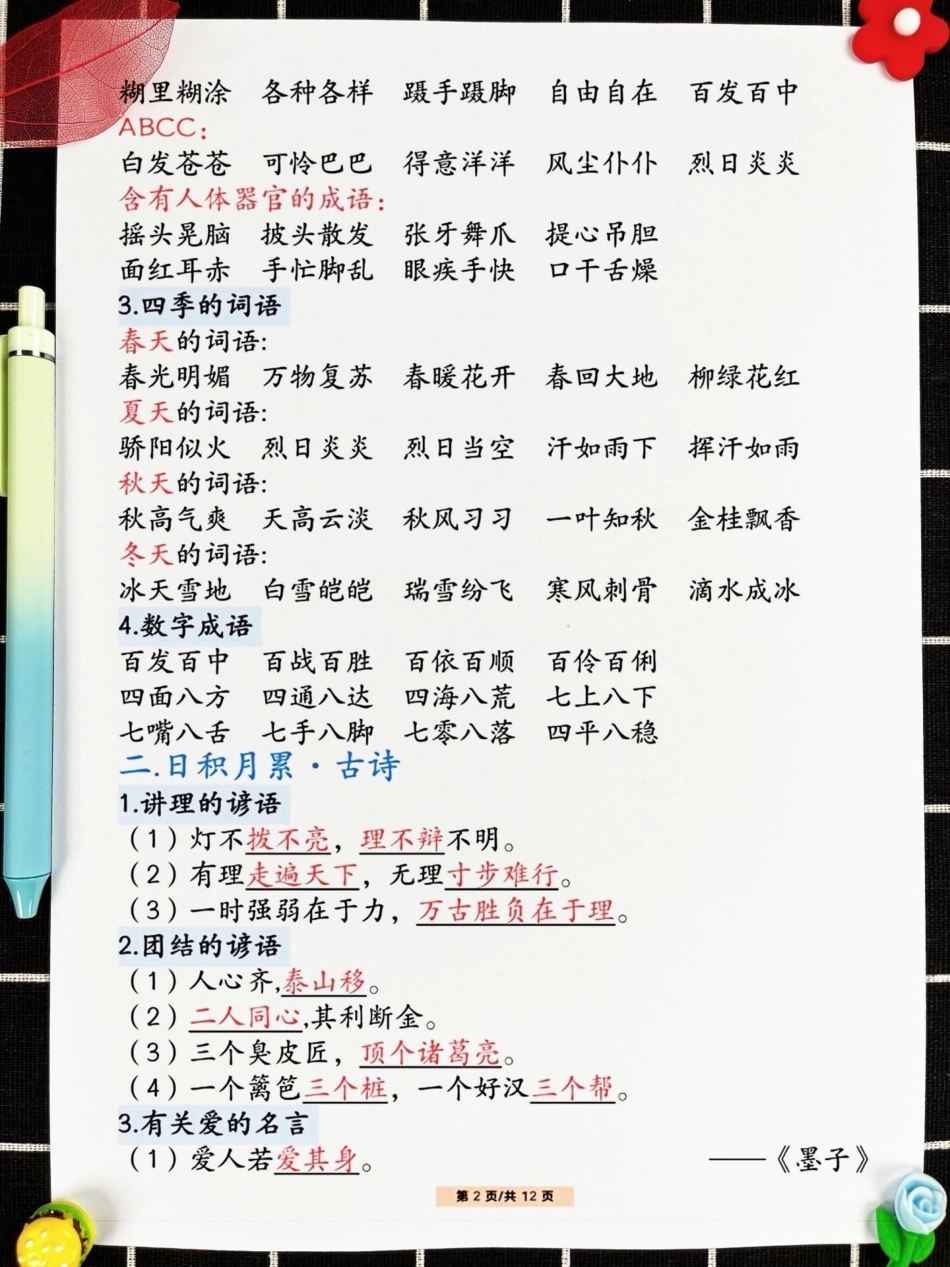 糊里糊涂 各种各样 蹑手蹑脚 自由自在 百发百中
ABCC：
白发苍苍 可怜巴巴 得意洋洋 风尘仆仆 烈日炎炎
含有人体器官的成语：
摇头晃脑 披头散发 张牙舞爪 提心吊胆
面红耳赤 手忙脚乱 眼疾手快 口干舌燥
3.四季的词语
春天的词语:
春光明媚 万物复苏 春暖花开 春回大地 柳绿花红
夏天的词语:
骄阳似火 烈日炎炎 烈日当空 汗如雨下 挥汗如雨
秋天的词语:
秋高气爽 天高云淡 秋风习习 一叶知秋 金桂飘香
冬天的词语:
冰天雪地 白雪皑皑 瑞雪纷飞 寒风刺骨 滴水成冰
4.数字成语
百发百中 百战百胜 百依百顺 百伶百俐
四面八方 四通八达 四海八荒 七上八下
七嘴八舌 七手八脚 七零八落 四平八稳
二.日积月累·古诗
1.讲理的谚语
（1）灯不拨不亮，理不辩不明。
（2）有理走遍天下，无理寸步难行。
（3）一时强弱在于力，万古胜负在于理。
2.团结的谚语
（1）人心齐,泰山移。
（2）二人同心,其利断金。
（3）三个臭皮匠，顶个诸葛亮。
（4）一个篱笆三个桩，一个好汉三个帮。
3.有关爱的名言
（1）爱人若爱其身。 ——《墨子》
第 2 页/共 12 页